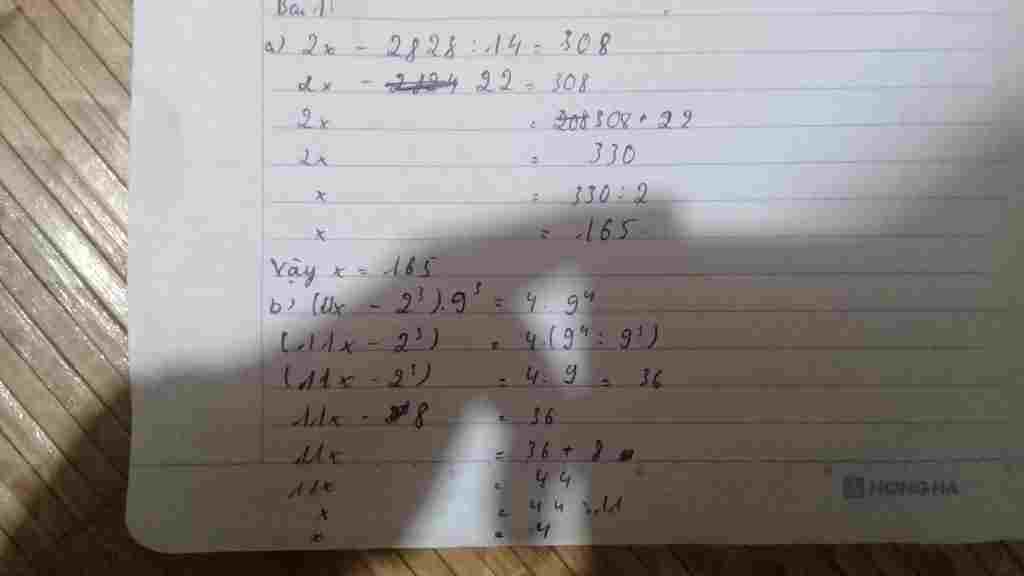 Bài 1:
a) 2x - 2828 : 14 = 308
2x - 22 = 308
2x = 308 + 22
2x = 330
x = 330 : 2
x = 165
Vậy x = 165
b) (11x - 2³).9³ = 4 . 9⁴
(11x - 2³) = 4.(9⁴ : 9³)
(11x - 2³) = 4 . 9 = 36
11x - 8 = 36
11x = 36 + 8
11x = 44
x = 44 : 11
x = 4
HONG HA